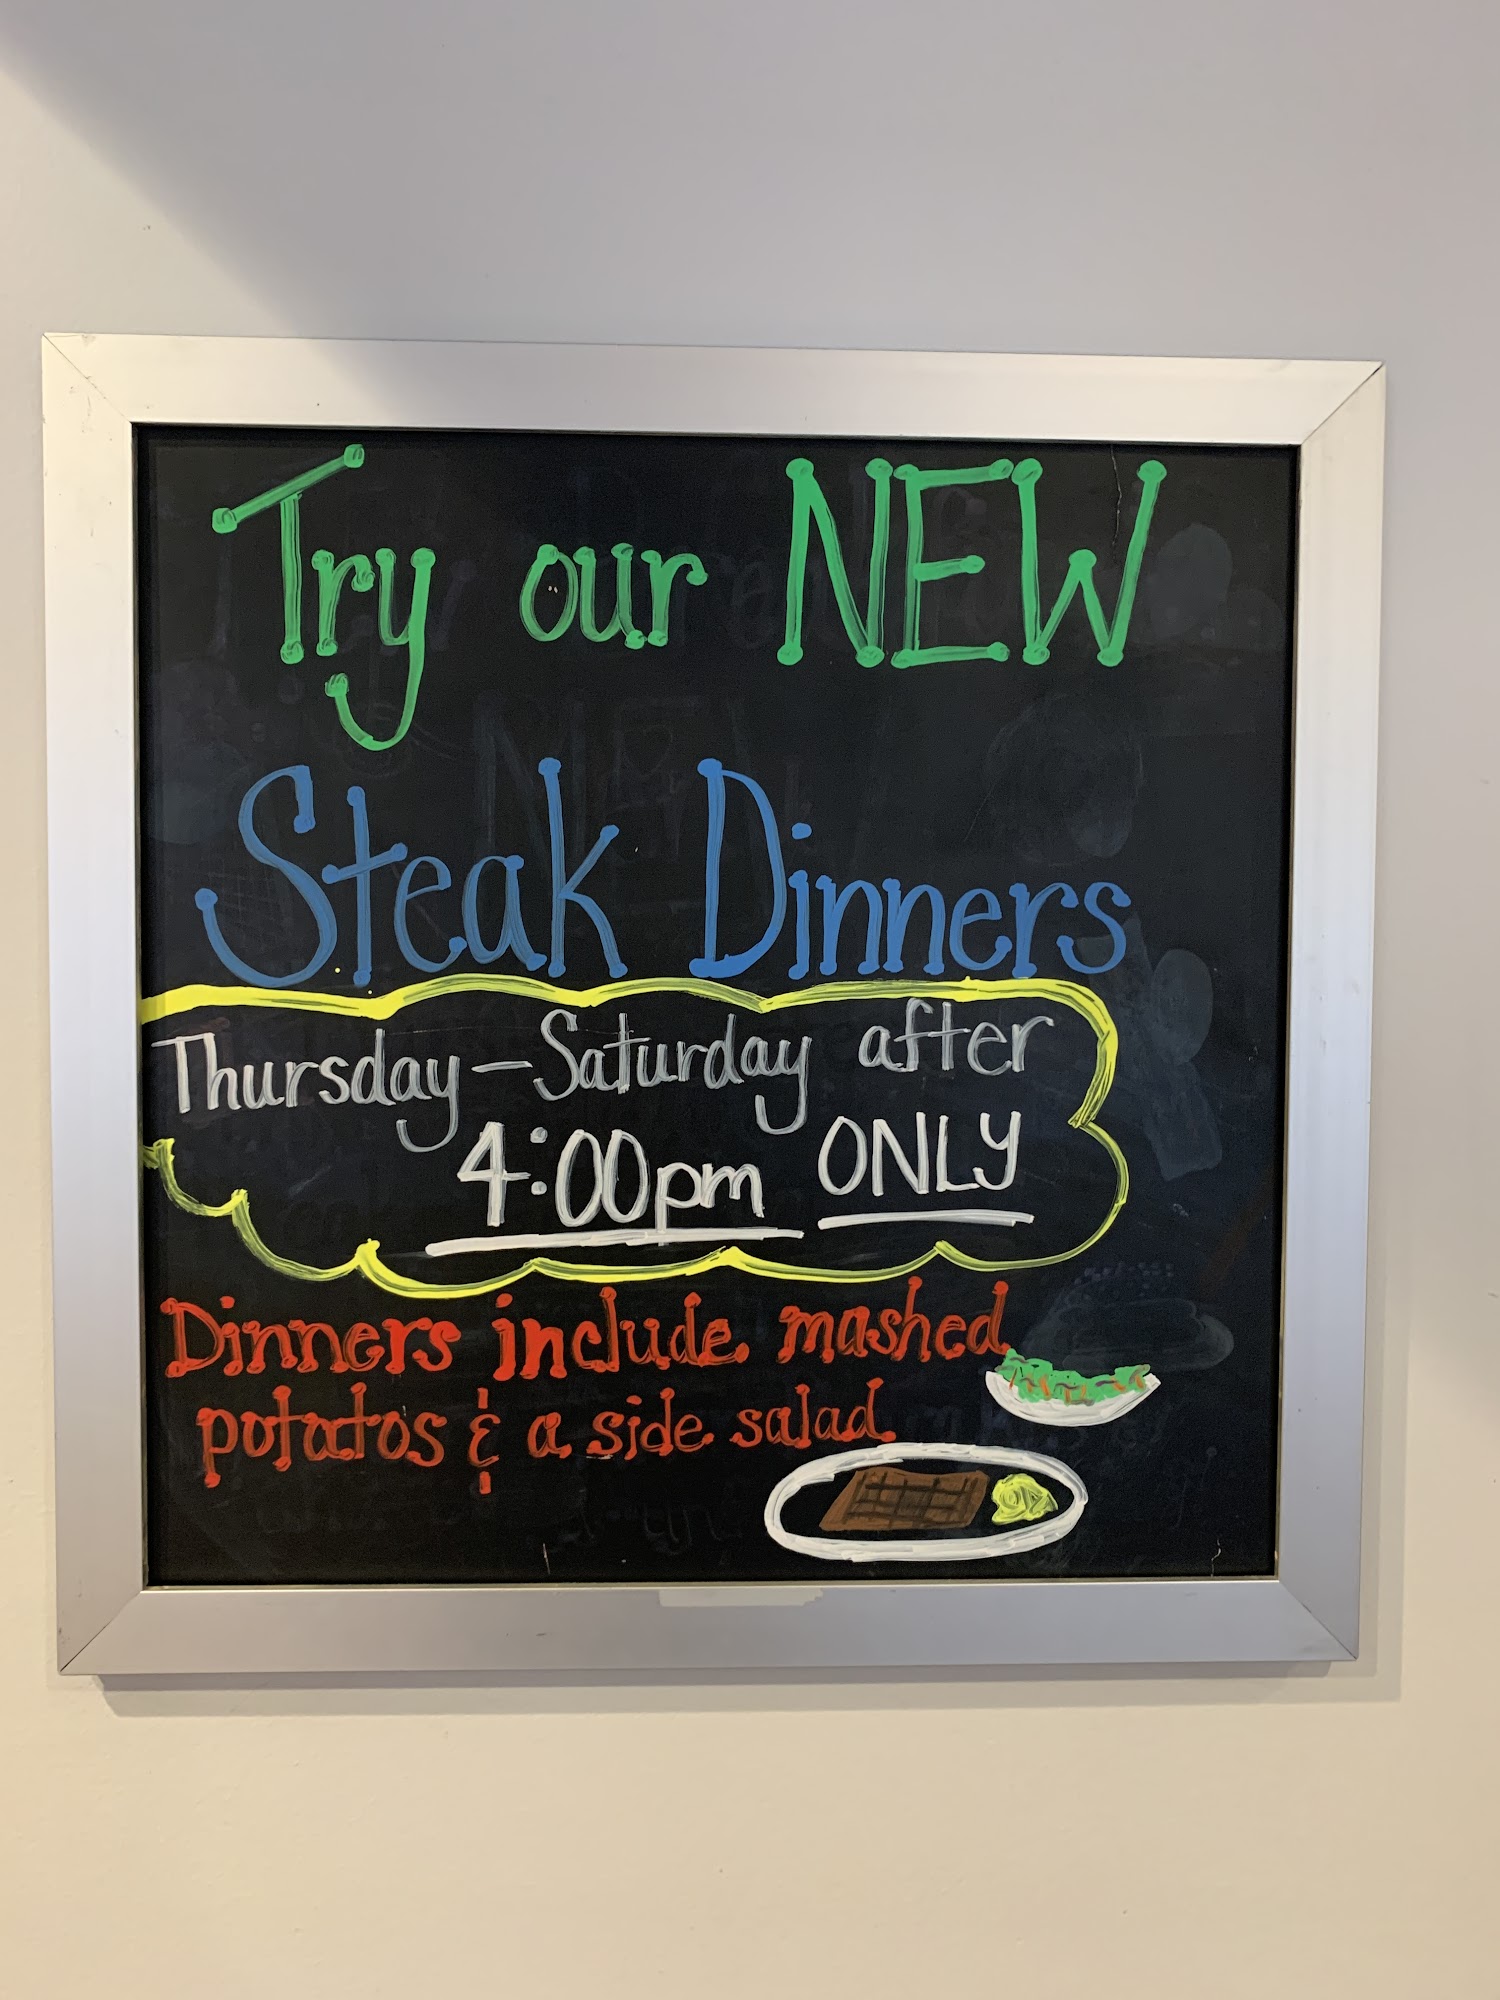 Try our NEW
Steak Dinners
Thursday-Saturday after
4:00pm ONLY
Dinners include mashed
potatos & a side salad